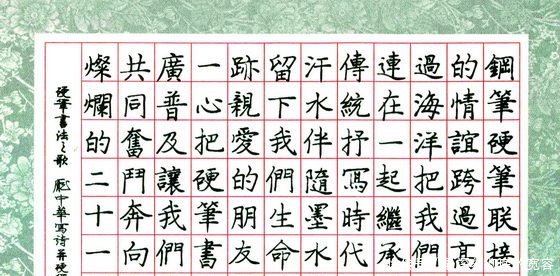 鋼筆硬筆联接
的情誼跨過高
過海洋把我們
連在一起繼承
傳統抒寫時代
汗水伴隨墨水
留下我們生命
跡親愛的朋友
一心把硬筆書
廣普及讓我們
共同奮鬥奔向
燦爛的二十一
硬筆書法之歌 龐中華写诗并硬